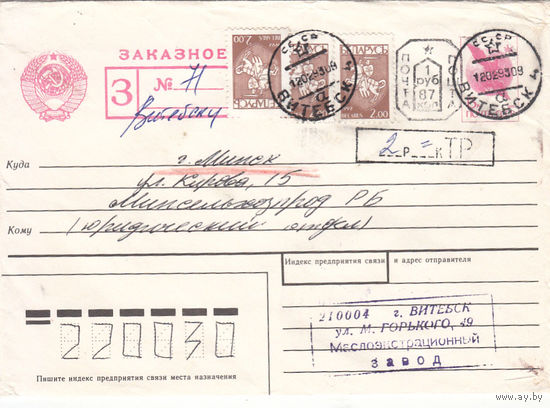 ЗАКАЗНОЕ
З № 71
Витебск
2.00
БЕЛАРУСЬ
2.00
BELARUS
ПОЧТА
1
руб
87
коп
СССР
12029309
ВИТЕБСК 4
а
СССР
12029309
ВИТЕБСК 4
а
2= Р К ТР
Куда
г. Минск
ул. Кирова, 15
Минсельхозпрод РБ
Кому
(юридический отдел)
Индекс предприятия связи и адрес отправителя
210004 г. ВИТЕБСК
ул. М. ГОРЬКОГО, 49
Маслоэкстрационный
завод
220030
Пишите индекс предприятия связи места назначения
www.ay.by